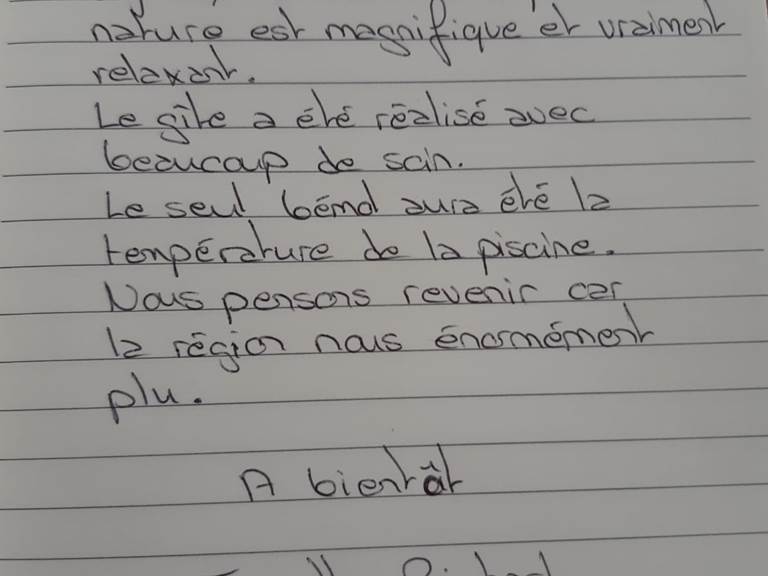 nature est magnifique et vraiment
relaxant.
Le gîte a été réalisé avec
beaucoup de soin.
Le seul bémol aura été la
température de la piscine.
Nous pensons revenir car
la région nous énormément
plu.
A bientôt